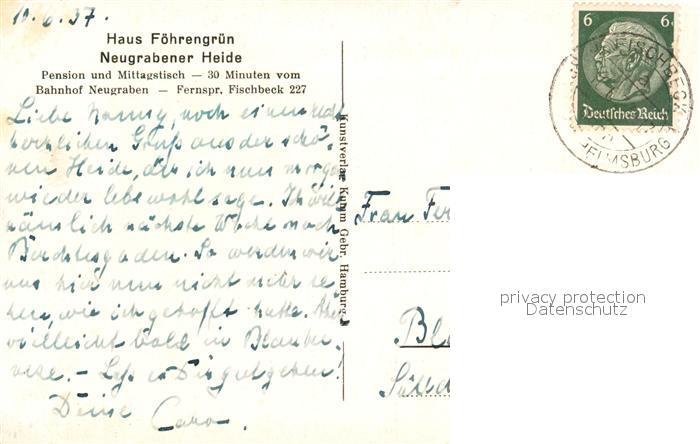 11.6.37.
Haus Föhrengrün
Neugrabener Heide
Pension und Mittagstisch — 30 Minuten vom
Bahnhof Neugraben — Fernspr. Fischbeck 227
Liebe noch einen recht
herzlichen Gruß aus der schö-
nen Heide, der ich nun morgen
wieder lebewohl sage. Ich will
nämlich nächste Woche nach
Berchtesgaden. So werden wir
uns hier nun nicht mehr se-
hen, wie ich gehofft hatte. Aber
vielleicht bald in Blanke-
nese. – Laß es Dir gut gehen!
Deine Caro.
Kunstverlag Kumm Gebr. Hamburg
Frau Fer
Bla
6 6
Deutsches Reich
FISCHBECK
HELMSBURG
privacy protection
Datenschutz